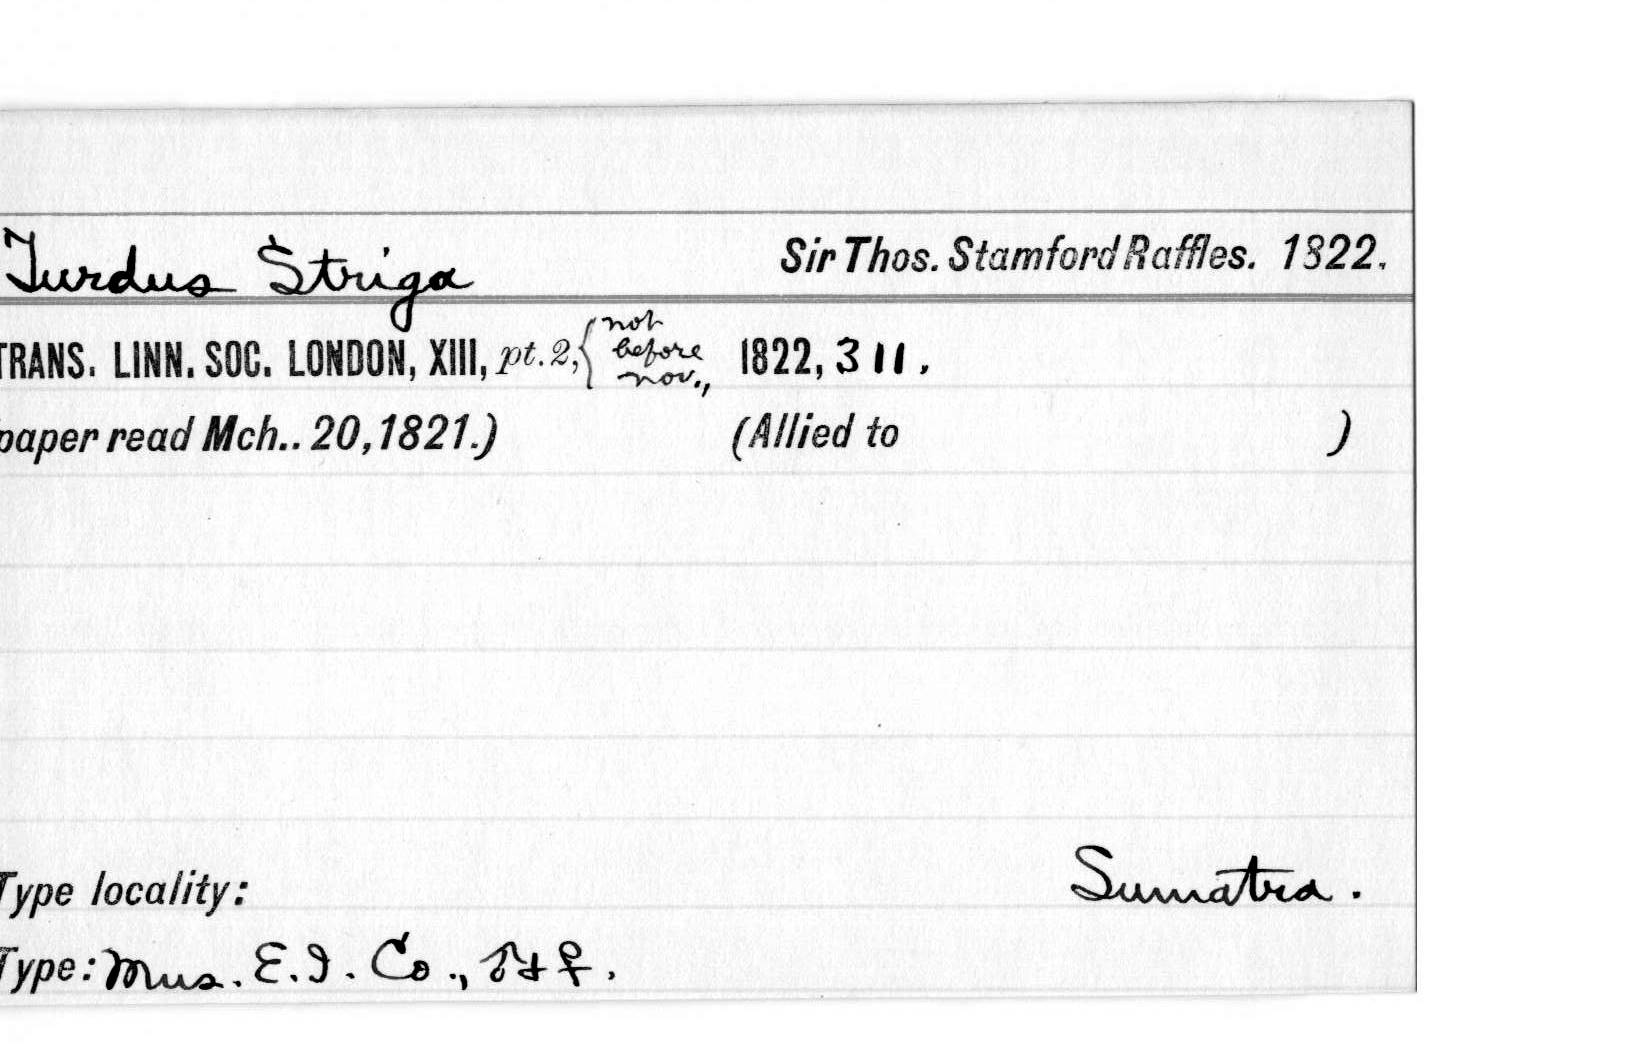 Turdus Striga Sir Thos. Stamford Raffles. 1822.
TRANS. LINN. SOC. LONDON, XIII, pt. 2, { not before nov., 1822, 311.
paper read Mch.. 20, 1821.) (Allied to )
Type locality: Sumatra.
Type: Mus. E. I. Co., ♂ + ♀.